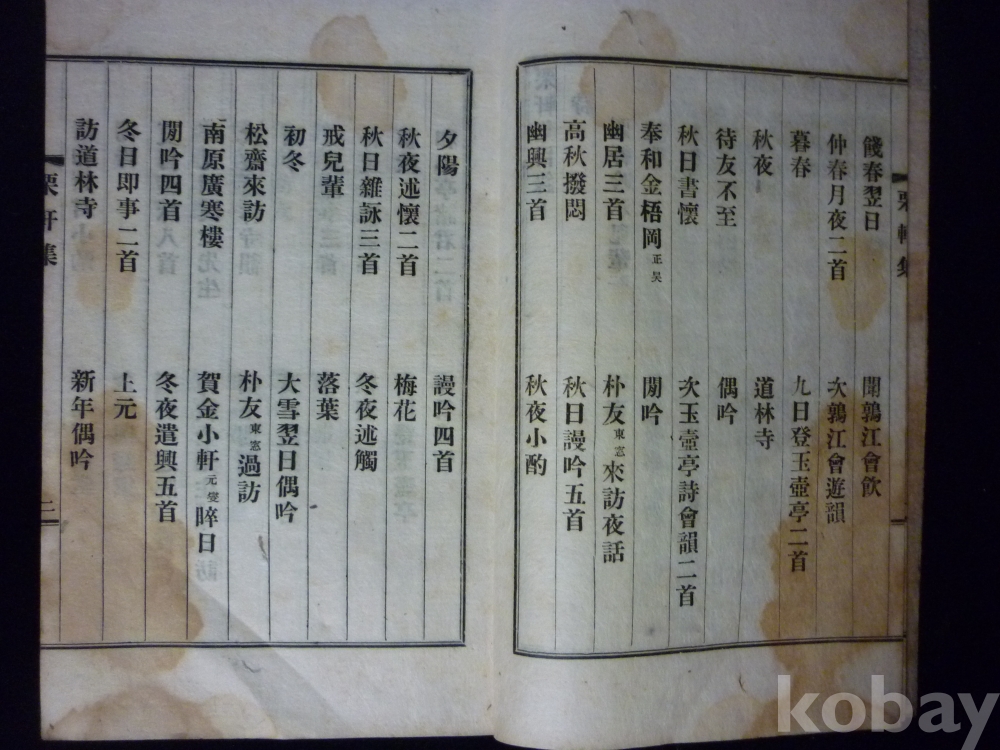 栗軒集
餞春翌日 聞鶉江會飮
仲春月夜二首 次鶉江會遊韻
暮春 九日登玉壺亭二首
秋夜 道林寺
待友不至 偶吟
秋日書懷 次玉壺亭詩會韻二首
奉和金梧岡正昊 閒吟
幽居三首 朴友東窓來訪夜話
高秋撥悶 秋日謾吟五首
幽興三首 秋夜小酌
夕陽 謾吟四首
秋夜述懷二首 梅花
秋日雜詠三首 冬夜述觴
戒兒輩 落葉
初冬 大雪翌日偶吟
松齋來訪 朴友東窓過訪
南原廣寒樓 賀金小軒元燮晬日
閒吟四首 冬夜遣興五首
冬日卽事二首 上元
訪道林寺 新年偶吟
栗軒集 二
kobay